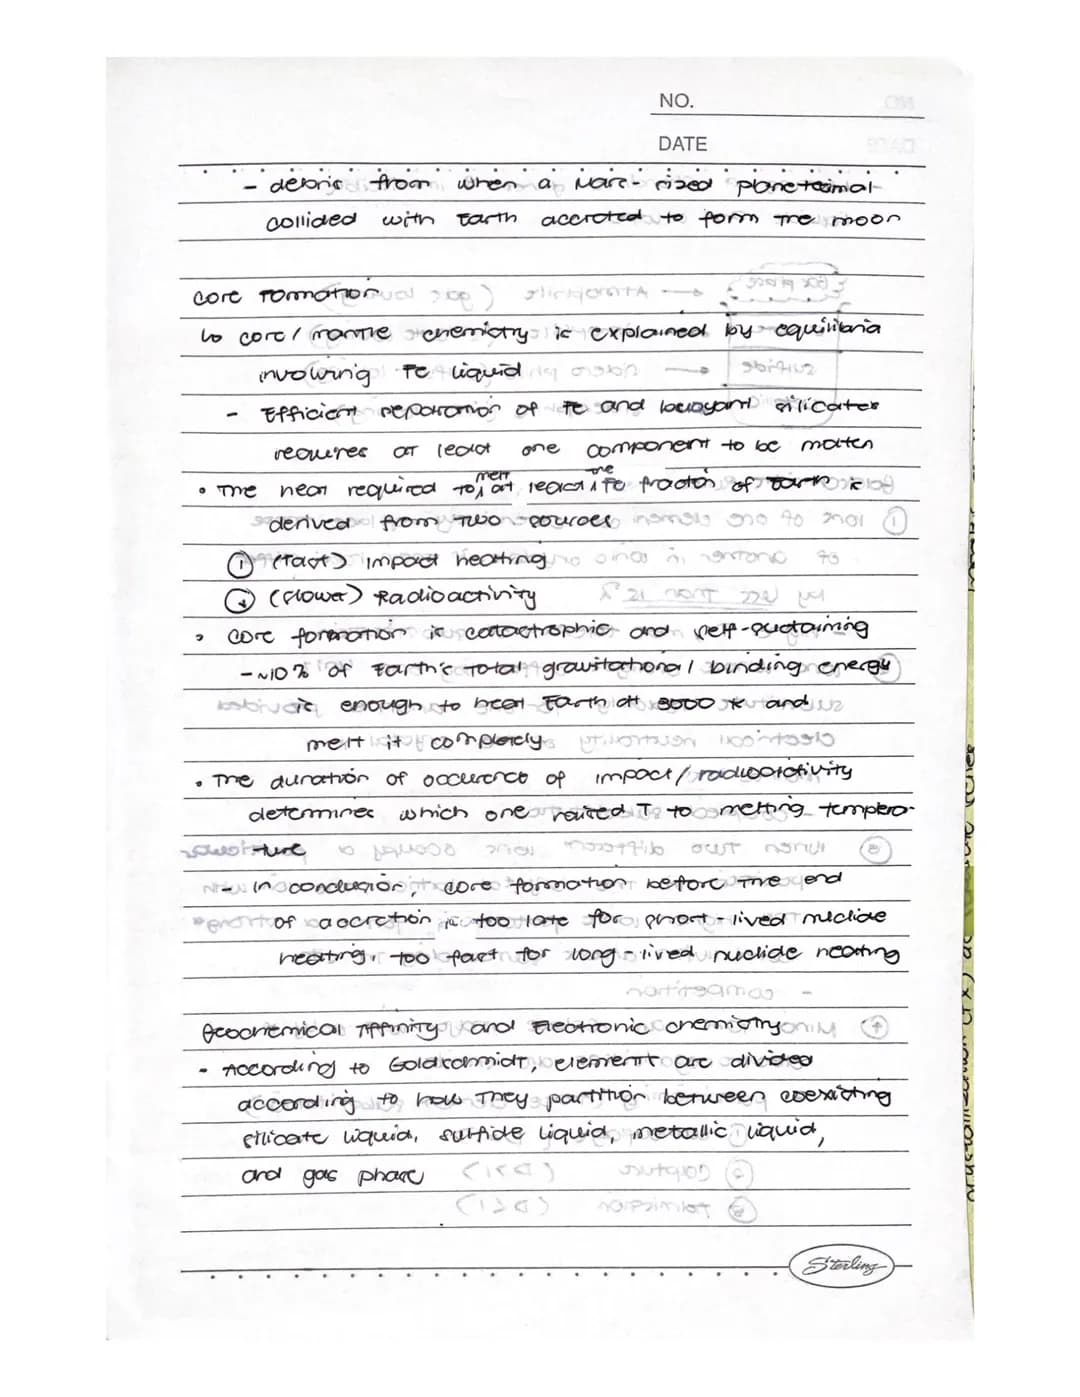 NO.
DATE
- debris from when a Mars-sized planetesimal
collided with Earth accreted to form the moon
Core Formation
↳ core/mantle chemistry is explained by equilibria
involving Fe liquid
- Efficient separation of Fe and buoyant silicates
requires at least one component to be molten
• The heat required to melt at least the Fe fraction of Earth is
derived from two sources
① (Fast) impact heating
② (slower) Radioactivity
• core formation is catastrophic and self-sustaining
- ~10% of Earth's total gravitational binding energy
is enough to heat Earth at 3000 K and
melt it completely
• The duration of occurence of impact/radioactivity
determines which one raised T to melting tempera-
ture
- In conclusion, core formation before the end
of accretion is too late for short-lived nuclide
heating, too fast for long-lived nuclide heating
Geochemical Affinity and Electronic chemistry
- According to Goldschmidt, element are divided
according to how they partition between coexisting
silicate liquid, sulfide liquid, metallic liquid,
and gas phase
Sterling